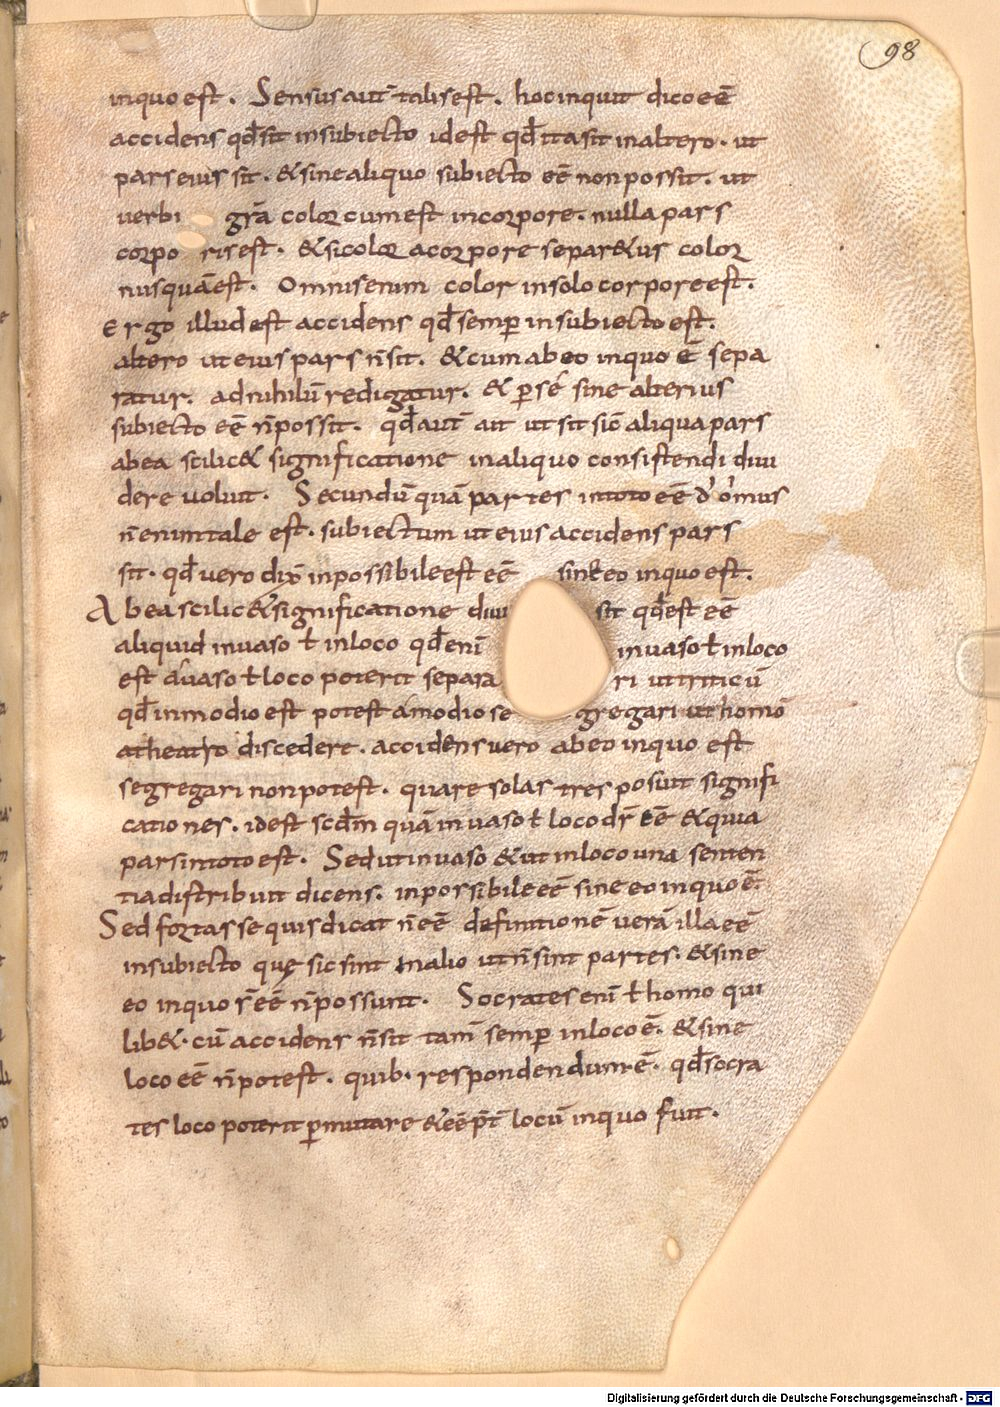 98
inquo est. Sensus aut̄ talis est. hoc inquit dico eē̄
accidens qd̄ sit insubiecto id est qd̄ ita sit inaltero. ut
pars eius sit. & sine aliquo subiecto eē̄ non possit. ut
uerbi gr̄a color cum est incorpore. nulla pars
corporis est. & si color acorpore separ&us color
nusquā est. Omnis enim color insolo corpore est.
Ergo illud est accidens qd̄ semp̄ insubiecto est.
altero ut eius pars n̄ sit. & cum ab eo inquo ē sepa
ratur. ad nihilū redigatur. & p̄ sé sine alterius
subiecto eē̄ n̄ possit. qd̄ aut̄ ait ut sit sic̄ aliqua pars
ab ea scilic& significatione inaliquo consistendi diui
dere uoluit. Secundū quā partes intoto eē̄
n̄ enim tale est. subiectum ut eius accidens pars
sit. qd̄ uero dix̄ inpossibile est eē̄ sine eo inquo est.
Ab ea scilic& significatione diui sit qd̄ est eē̄
aliquid inuaso ł inloco qd̄ enī inuaso ł inloco
est áuaso ł loco poterit separari ut triticū
qd̄ inmodio est potest ámodio segregari ut homo
atheatro discedere. accidens uero ab eo inquo est
segregari non potest. quare solas tres posuit signifi
cationes. id est scd̄m quā inuaso ł loco dr̄ eē̄ & quia
pars intoto est. Sed ut inuaso & ut inloco una senten
tia distribuit dicens. inpossibile eē̄ sine eo inquo ē.
Sed fortasse quis dicat n̄ eē̄ definitionē uerā illa eē̄
insubiecto quę sic sint inalio ut n̄ sint partes. & sine
eo inquo s̄ eē̄ n̄ possunt. Socrates enī ł homo qui
lib&. cū accidens n̄ sit tam̄ semp̄ inloco ē. & sine
loco eē̄ n̄ potest. quib. respondendum ē. qd̄ socra
tes loco poterit p̄mutare & eē̄ p̄t̄ locū inquo fuit.
Digitalisierung gefördert durch die Deutsche Forschungsgemeinschaft - DFG